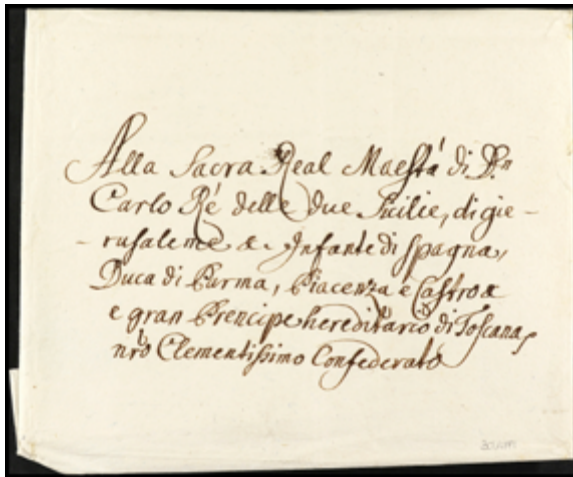 Alla Sacra Real Maestà di Dn
Carlo Ré delle due Sicilie, di gie-
-rusaleme &. Infante di Spagna,
Duca di Parma, Piacenza e Castro &
e gran Prencipe hereditario di Toscana,
nro Clementissimo Confederato